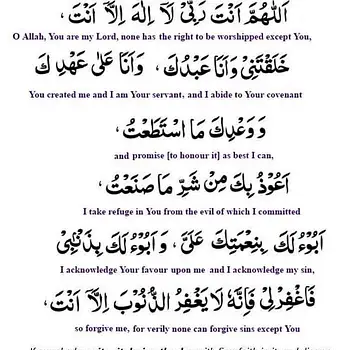 اَللّٰهُمَّ اَنْتَ رَبِّيْ لَآ اِلٰهَ اِلَّآ اَنْتَ،
O Allah, You are my Lord, none has the right to be worshipped except You,
خَلَقْتَنِيْ وَاَنَا عَبْدُكَ، وَاَنَا عَلٰى عَهْدِكَ
You created me and I am Your servant, and I abide to Your covenant
وَ وَعْدِكَ مَا اسْتَطَعْتُ،
and promise [to honour it] as best I can,
اَعُوْذُ بِكَ مِنْ شَرِّ مَا صَنَعْتُ،
I take refuge in You from the evil of which I committed
اَبُوْءُ لَكَ بِنِعْمَتِكَ عَلَيَّ، وَ اَبُوْءُ لَكَ بِذَنْبِيْ
I acknowledge Your favour upon me and I acknowledge my sin,
فَاغْفِرْلِيْ فَاِنَّهٗ لَا يَغْفِرُ الذُّنُوْبَ اِلَّآ اَنْتَ،
so forgive me, for verily none can forgive sins except You